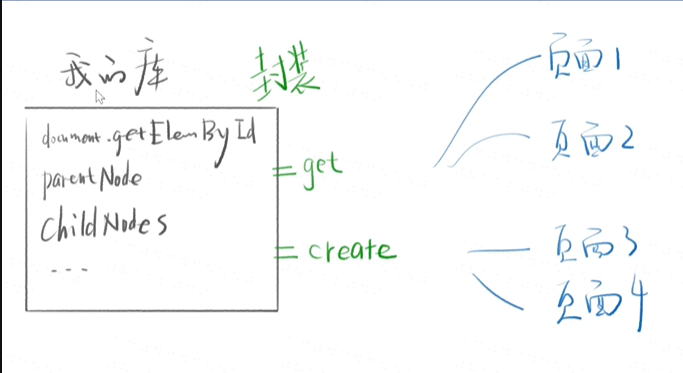 我的库
封装
document.getElemById
parentNode
childNodes
...
=get
=create
页面1
页面2
页面3
页面4